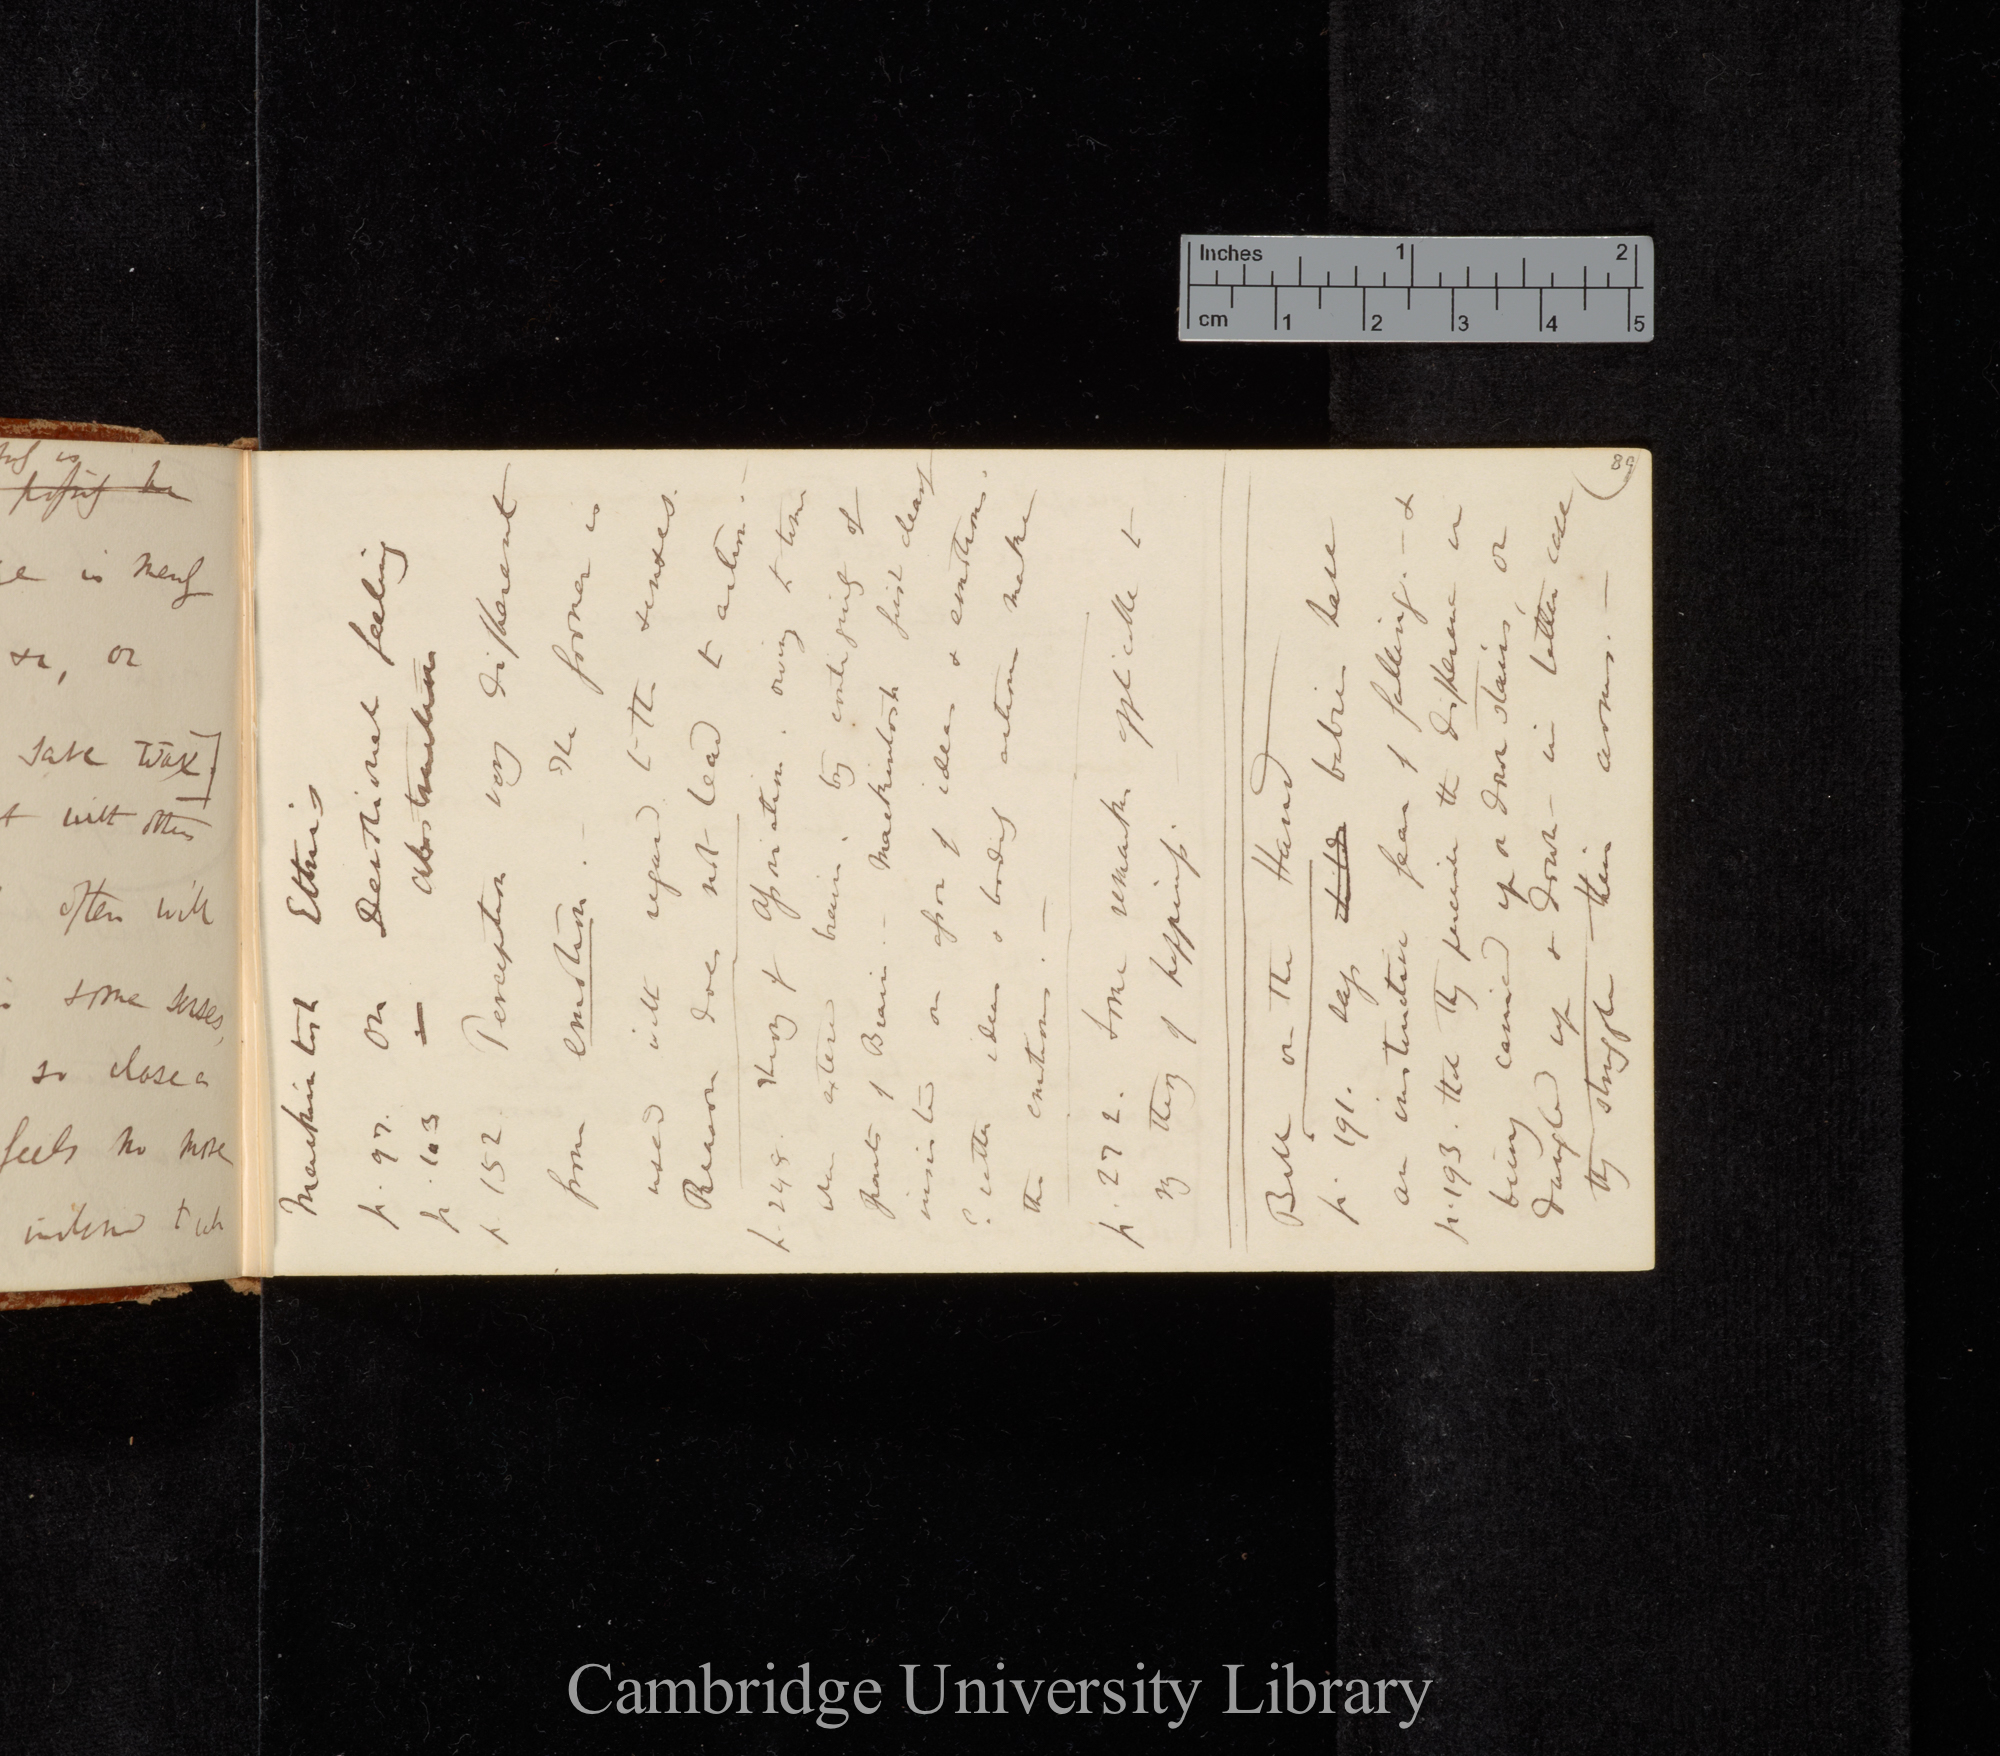 Mackintosh Ethics
p. 97. on Devotional feeling
p. 103 — Abstraction
p. 152 Perception very different
from emotion. — The former is
used with regard to the senses.
Reason does not lead to action. —
p. 248. theory of association. owing to
when entered brain. by contiguity of
parts of Brain. — Mackintosh first clearly
insisted on assoc of ideas & emotions.
? whether ideas & bodily actions make
the emotions. —
p. 272. some remarks applicable to
my theory of happiness.
Bell on the Hand
p. 191. says child babies have
an instinctive fear of falling. — &
p. 193. that they perceive the difference in
being carried up or down stairs, or
dangled up & down — in latter case
they struggle their arms. —
89
is
possibly be
is merely
or
save
with others
often with
some senses,
so close a
feels no more
Inches 1 2
cm 1 2 3 4 5
Cambridge University Library